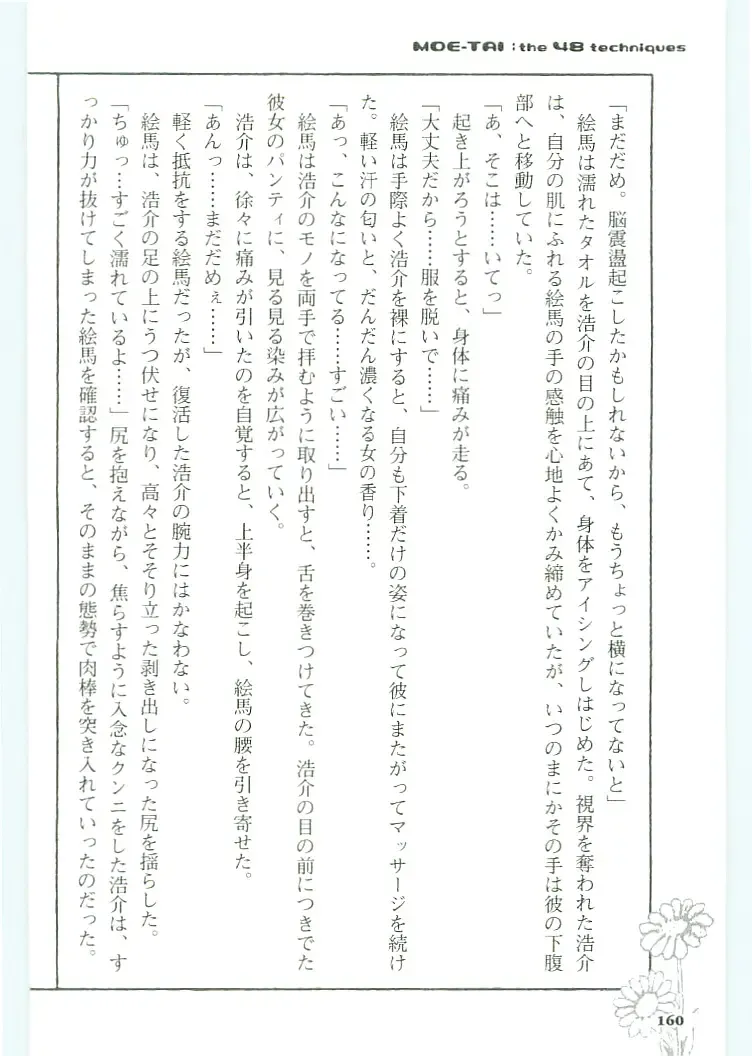 MOE-TAI : the 48 techniques
「まだだめ。脳震盪起こしたかもしれないから、もうちょっと横になってないと」
絵馬は濡れたタオルを浩介の目の上にあて、身体をアイシングしはじめた。視界を奪われた浩介
は、自分の肌にふれる絵馬の手の感触を心地よくかみ締めていたが、いつのまにかその手は彼の下腹
部へと移動していた。
「あ、そこは……いてっ」
起き上がろうとすると、身体に痛みが走る。
「大丈夫だから……服を脱いで……」
絵馬は手際よく浩介を裸にすると、自分も下着だけの姿になって彼にまたがってマッサージを続け
た。軽い汗の匂いと、だんだん濃くなる女の香り……。
「あっ、こんなになってる……すごい……」
絵馬は浩介のモノを両手で拝むように取り出すと、舌を巻きつけてきた。浩介の目の前につきでた
彼女のパンティに、見る見る染みが広がっていく。
浩介は、徐々に痛みが引いたのを自覚すると、上半身を起こし、絵馬の腰を引き寄せた。
「あんっ……まだだめぇ……」
軽く抵抗をする絵馬だったが、復活した浩介の腕力にはかなわない。
絵馬は、浩介の足の上にうつ伏せになり、高々とそそり立った剥き出しになった尻を揺らした。
「ちゅっ…すごく濡れているよ……」尻を抱えながら、焦らすように入念なクンニをした浩介は、す
っかり力が抜けてしまった絵馬を確認すると、そのままの態勢で肉棒を突き入れていったのだった。
160